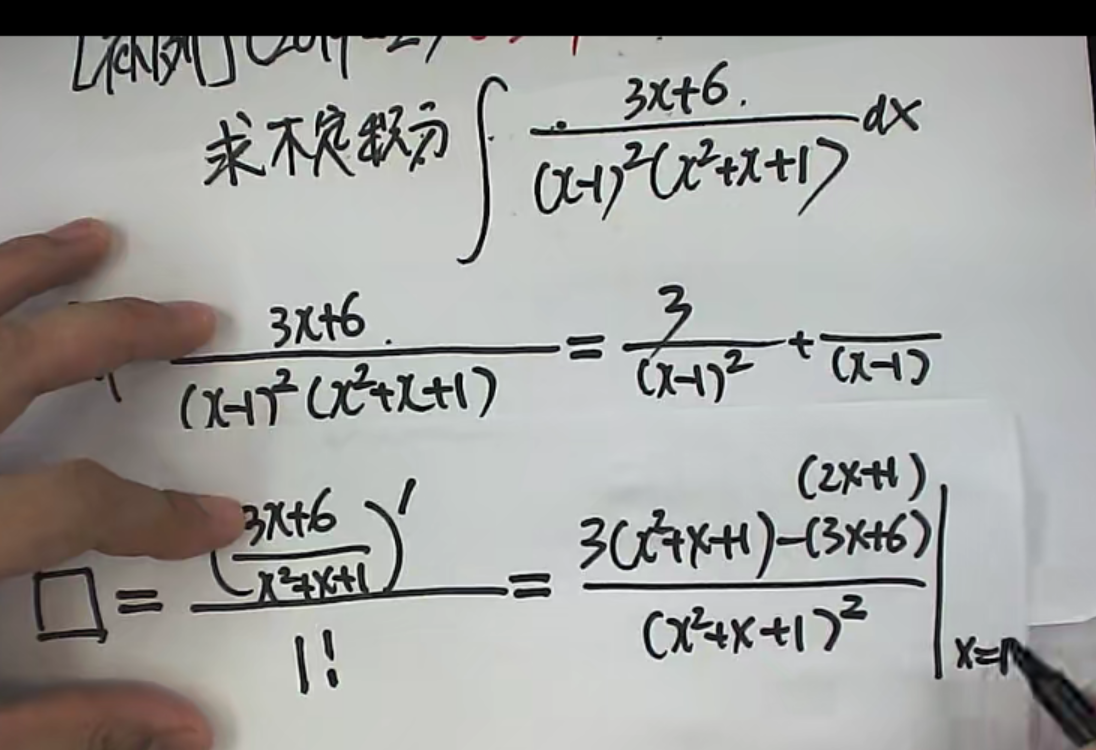 求不定积分 ∫ 3x+6 / (x-1)²(x²+x+1) dx
3x+6 / (x-1)²(x²+x+1) = 3 / (x-1)² + / (x-1)
□ = (3x+6 / x²+x+1)' / 1! = 3(x²+x+1)-(3x+6)(2x+1) / (x²+x+1)² | x=1